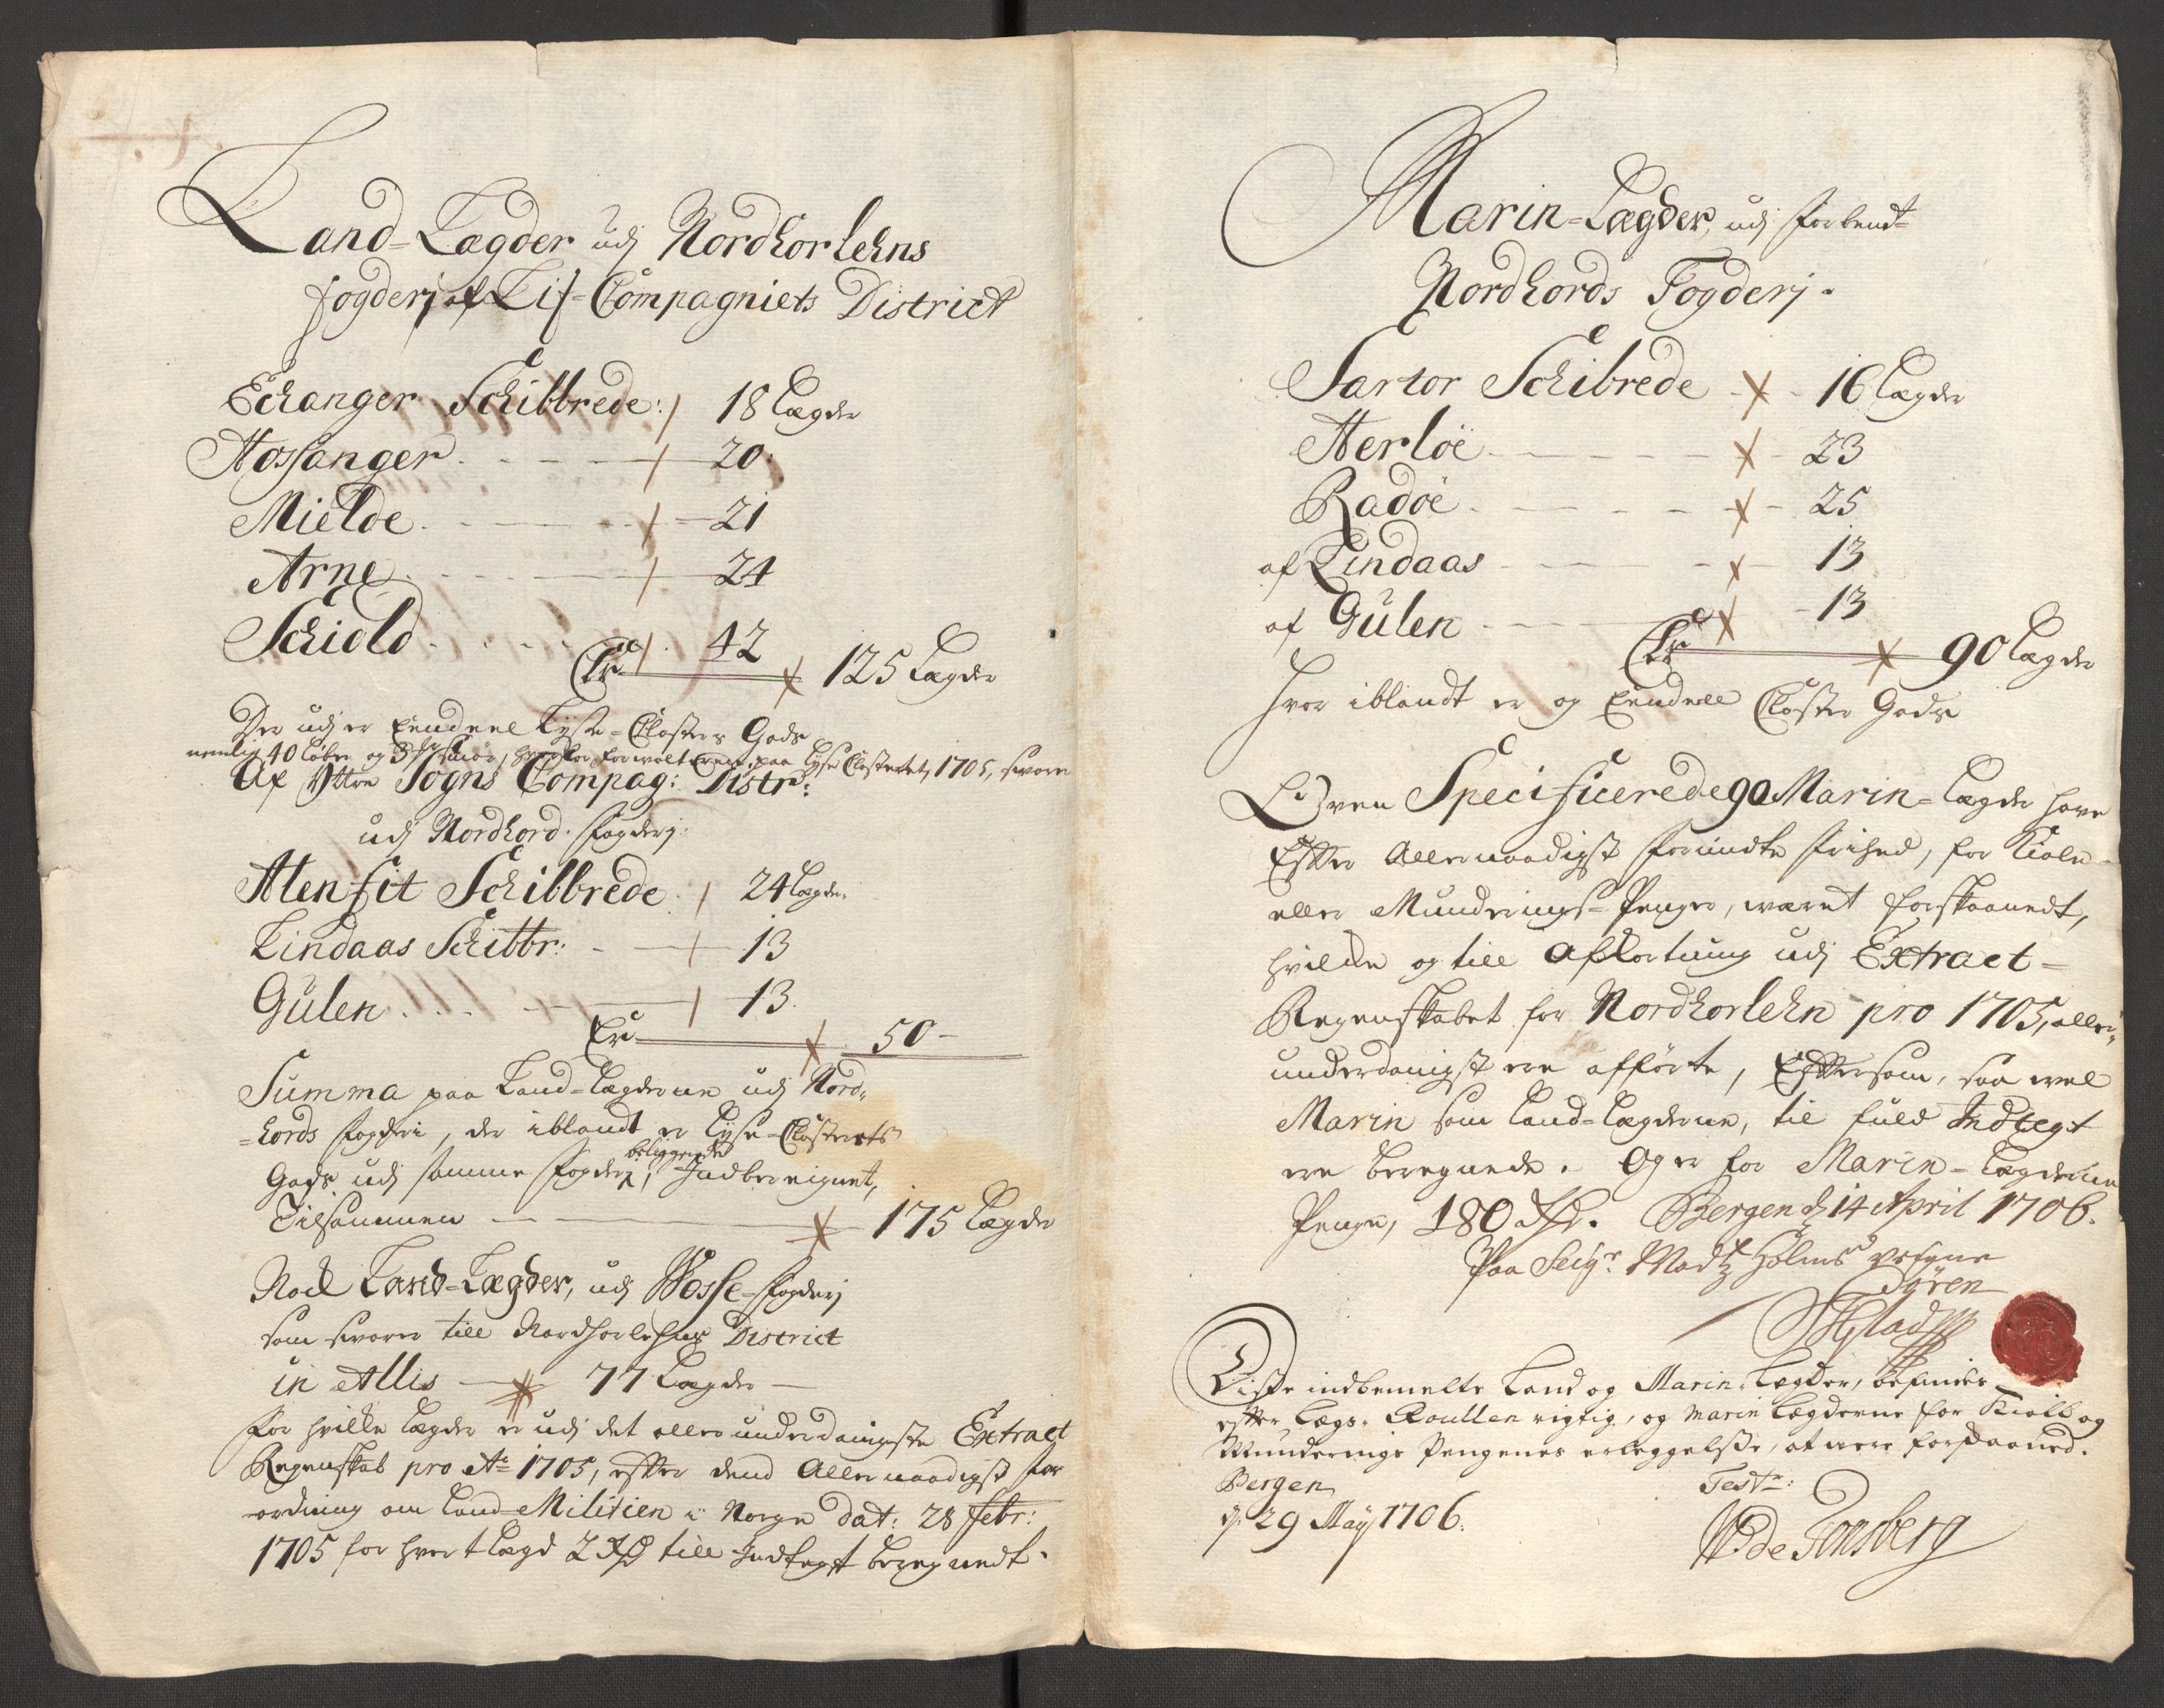 Land-Lægder udj Nordhorlehns
fogderj af Lif-Compagniets District
Echanger Schibbrede: 18 Lægder
Hossanger 20
Mielde 21
Arne 24
Schiold 42
Er 125 Lægder
Der udj er Eendeel Lyse-Closters Gods
nemlig 40 Løber og 3 smør, for paa Lyse Closteret, 1705, svarer
Af Yttre Sogns Compag: Distr:
udj Nordhord. fogderj.
Alenfit Schibbrede 24 Lægder
Lindaas Schibbr: 13
Gulen 13
Er 50
Summa paa Land-Lægderne udj Nord-
-hords fogderi, der iblandt er Lyse-Closterets
beliggende
Gods udj samme fogderj, Indbereignet,
Tilsammen 175 Lægder
Noch Land-Lægder, udj Vosse-fogderj
som svarer till Nordhorlehns District
in Allis 77 Lægder
For hvilke Lægder er udj det allerunderdanigste Extract
Regenskab pro Ao 1705, efter dend Allernaadigst for
ordning om Land-Militien i Norge dat: 28 febr:
1705 for hvert Lægd 2 Rd till Indtegt beregnedt.
Marin-Lægder, udj forbendt
Nordhords Fogderj.
Sartor Schibrede 16 Lægder
Herløe 23
Radøe 25
af Lindaas 13
af Gulen 13
Er 90 Lægder
Hvor iblandt er og Eendeell Closter Gods
Oven Specificerede 90 Marin-Lægder have
Efter Allernaadigst forundte frihed, for Kiole-
eller Munderings-Penger, wæret forskaanedt,
hvilke og till Afkortning udj Extract-
Regenskabet for Nordhorlehn pro 1705, aller-
underdanigst ere afførte, Eftersom, saa wel
Marin som Land-Lægderne, til fuld Indtegt
ere beregnede. Og er for Marin-Lægderne
Penge, 180 Rd. Bergen d 14 April 1706.
Paa Seigr. Madtz Holms veigne
Søren
Diste indbemelte Land og Marin-Lægder, befindes
efter Lægs-Roullen rigtig, og Marin Lægderne for Kiolle og
Munderings Pengenes erleggelse, at were forskaaned.
Bergen
d. 29 May 1706. Test:
de Tonsberg